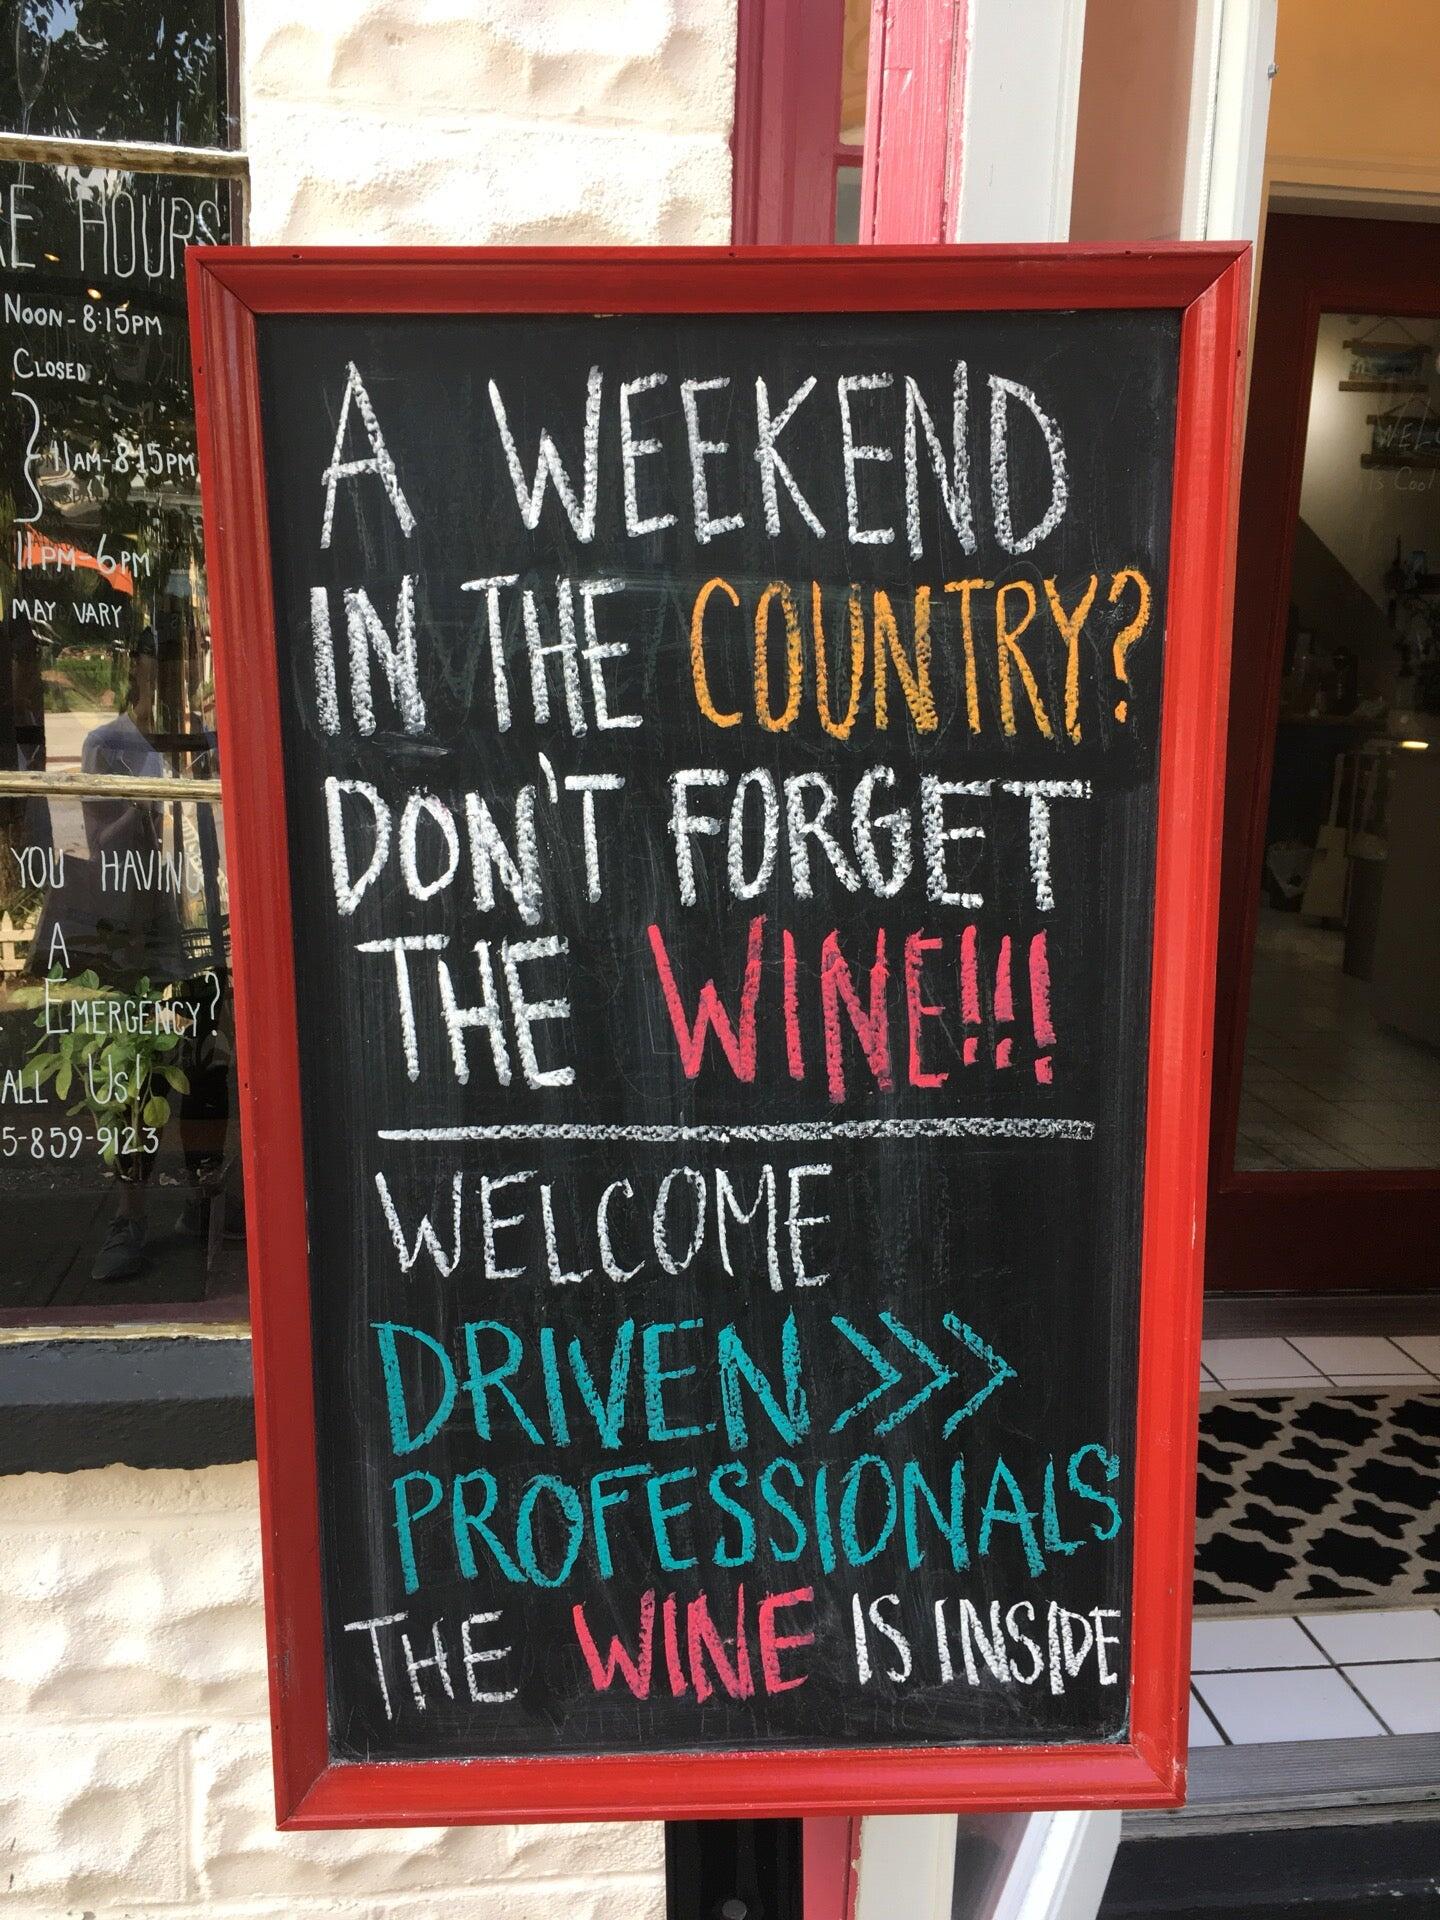 A WEEKEND
IN THE COUNTRY?
DON'T FORGET
THE WINE!!!
WELCOME
DRIVEN >>>
PROFESSIONALS
THE WINE IS INSIDE
HOURS
NOON - 8:15PM
CLOSED
} 11AM-8:15PM
11PM-6PM
MAY VARY
YOU HAVING
A
EMERGENCY?
US!
5-859-9123